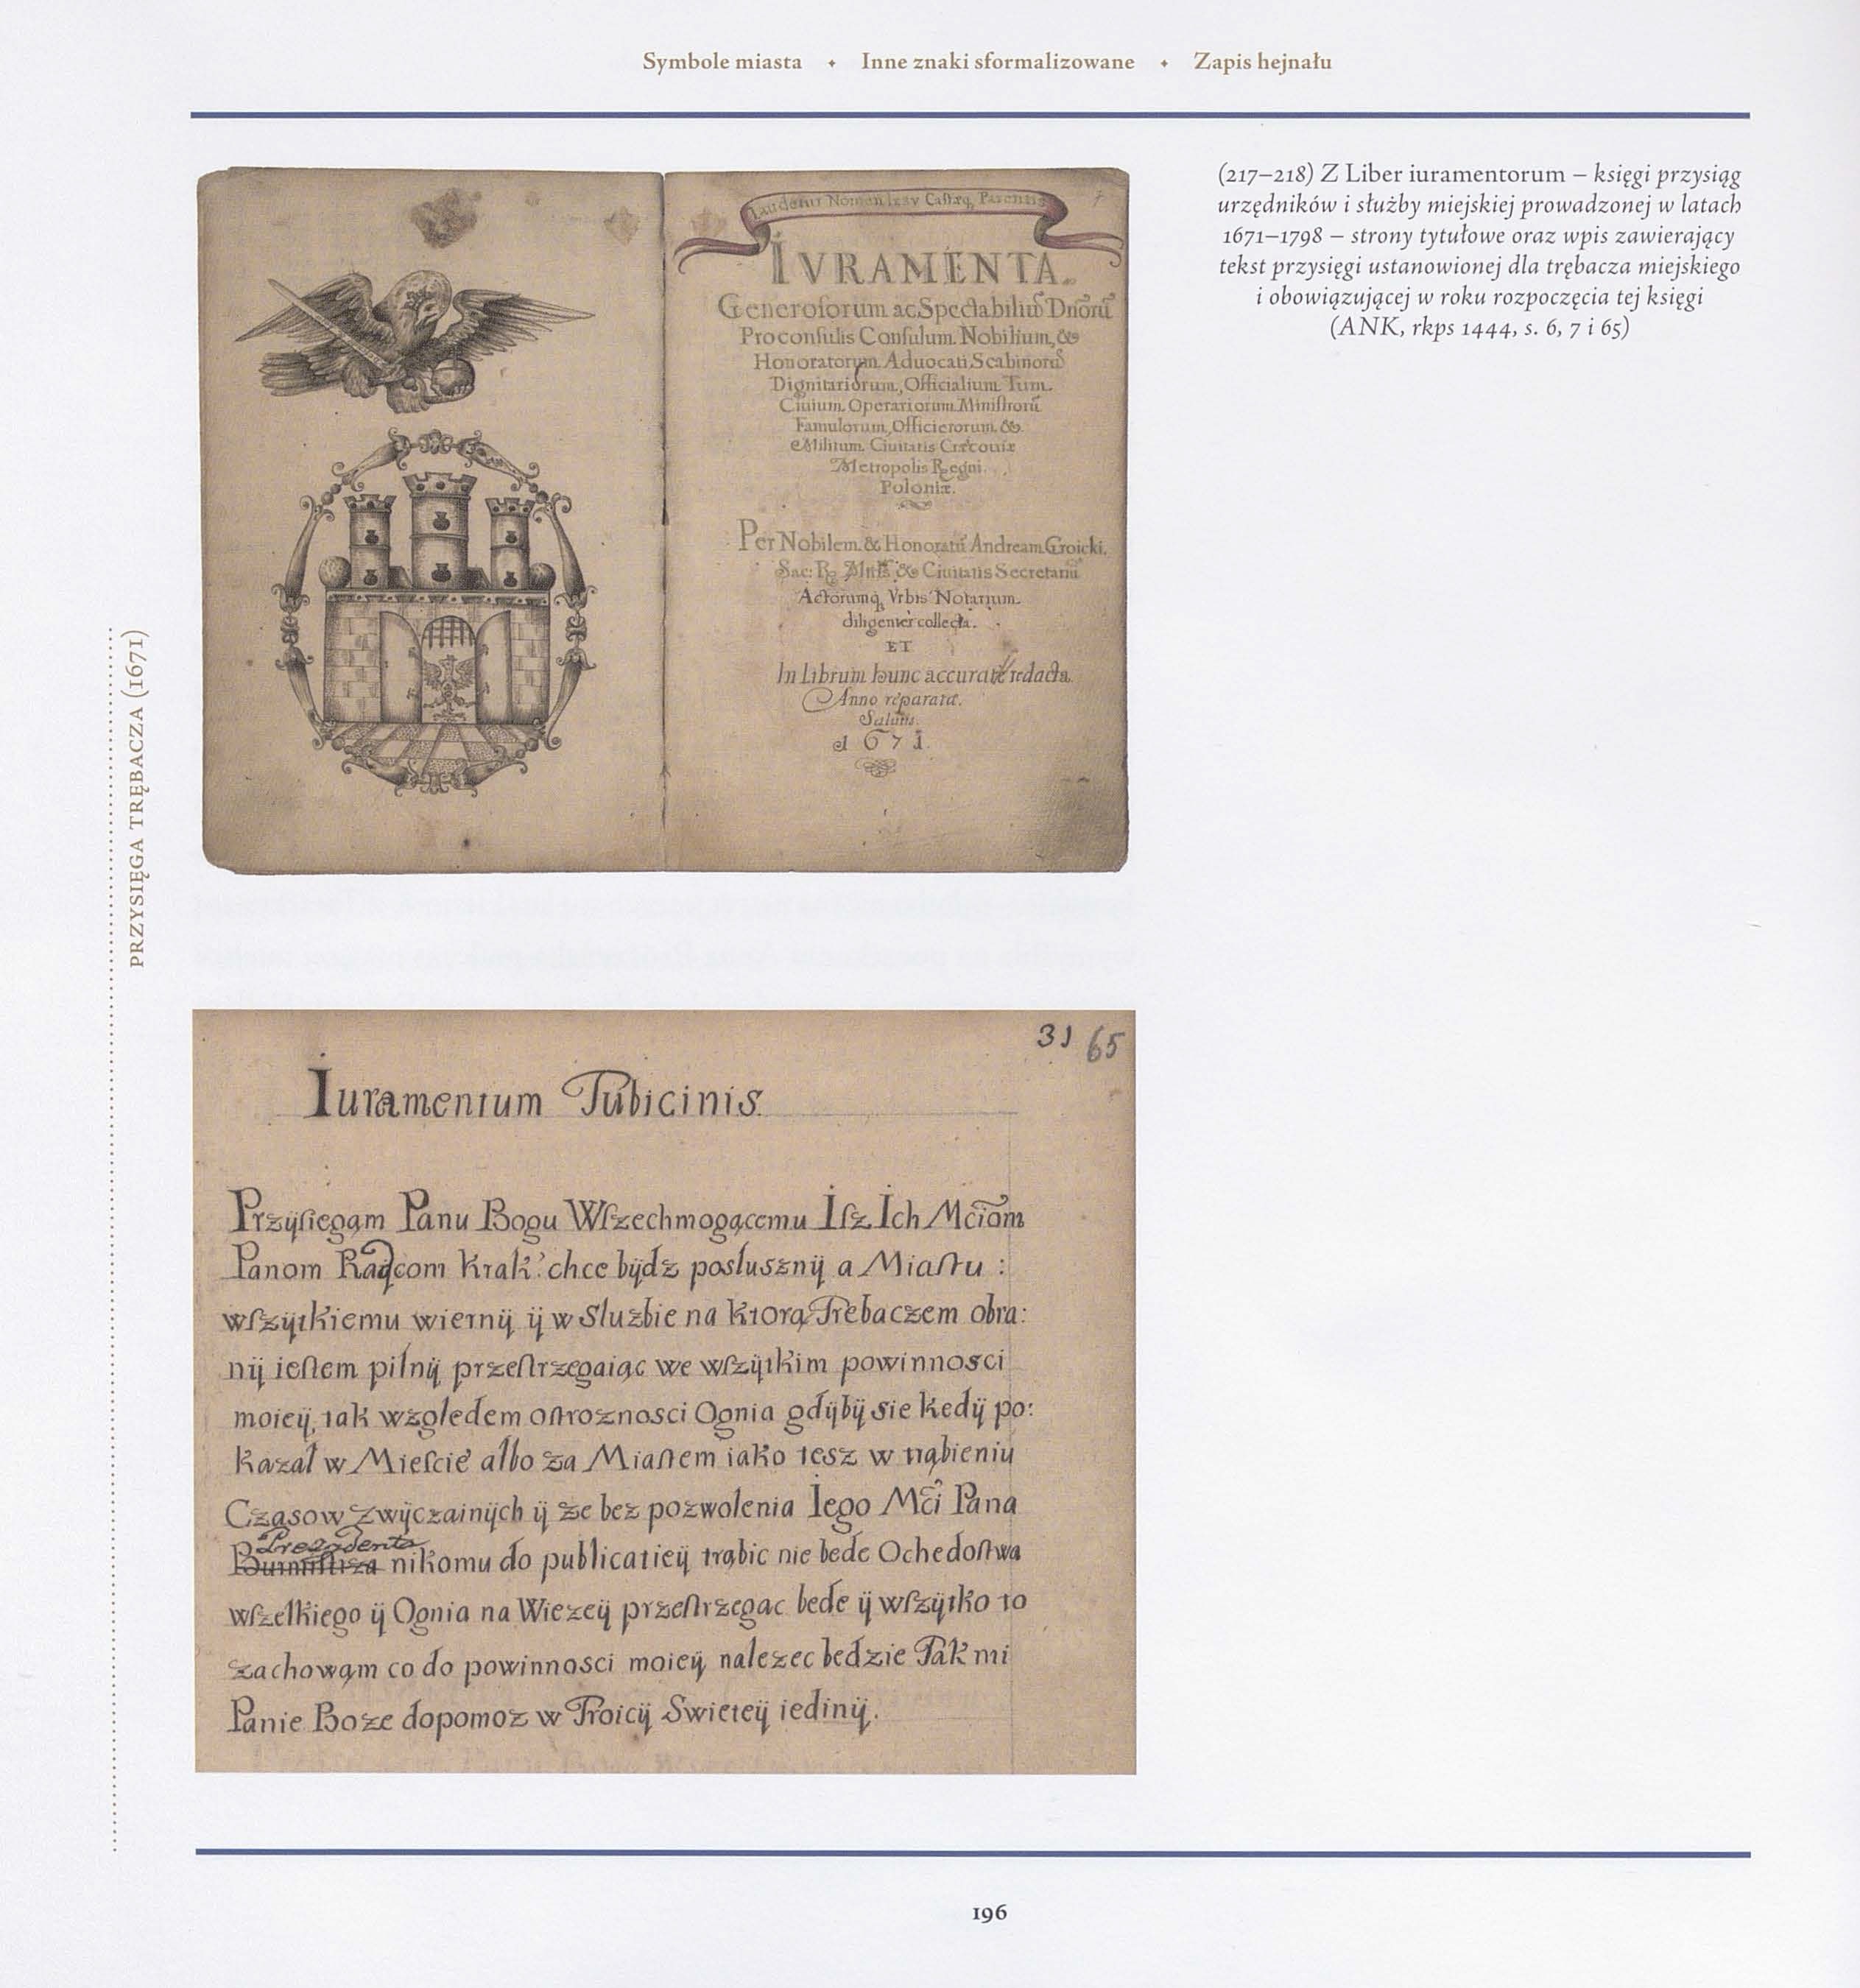 Symbole miasta ⬩ Inne znaki sformalizowane ⬩ Zapis hejnału
(217–218) Z Liber iuramentorum – księgi przysiąg
urzędników i służby miejskiej prowadzonej w latach
1671–1798 – strony tytułowe oraz wpis zawierający
tekst przysięgi ustanowionej dla trębacza miejskiego
i obowiązującej w roku rozpoczęcia tej księgi
(ANK, rkps 1444, s. 6, 7 i 65)
PRZYSIĘGA TRĘBACZA (1671)
7
Laudetur Nomen Iesv Castæq, Parentis
IVRAMENTA.
Generoſorum ac Spectabiliũ Dnõrũ
Proconſulis Conſulum Nobilium, &
Honoratorum Aduocati Scabinorũ
Dignitariorum, Officialium Tum
Ciuium Operariorum Miniſtrorũ
Famulorum, Officierorum &
Militum Ciuitatis Cracouiæ
Metropolis Regni
Poloniæ.
Per Nobilem & Honoratũ Andream Groicki,
Sac: R. & Ciuitatis Secretariũ
Actorumq, Vrbis Notarium
diligenter collecta.
ET
In Librum hunc accurate redacta
Anno reparatæ
Salutis
1671
31 65
Iuramentum Tubicinis.
Przÿſiegąm Panu Bogu Wſzechmogącemu Iſz Ich Mciom
Panom Raɋcom Krak: chce bÿdz posłusznÿ a Miaſtu :
wſzÿtkiemu wiernÿ ÿ w Sluzbie na ktorą Trebaczem obra:
nÿ ieſtem pilnÿ przeſtrzegaiąc we wſzÿtkim powinnosci
moieÿ, iak wzgledem oſtroznosci Ognia gdÿbÿ sie kedÿ po:
kazał w Mieſcie albo za Miaſtem iako tesz w trąbieniu
Czasow zwÿczainÿch ÿ ze bez pozwolenia Iego Mci Pana
Prezydenta
Burmiſtrza nikomu do publicatieÿ trąbic nie bede Ochedoſtwa
wſzelkiego ÿ Ognia na Wiezeÿ przeſtrzegac bede ÿ wſzÿtko to
zachowąm co do powinnosci moieÿ nalezec bedzie Tak mi
Panie Boze dopomoz w Troicÿ Swieteÿ iedinÿ.
196